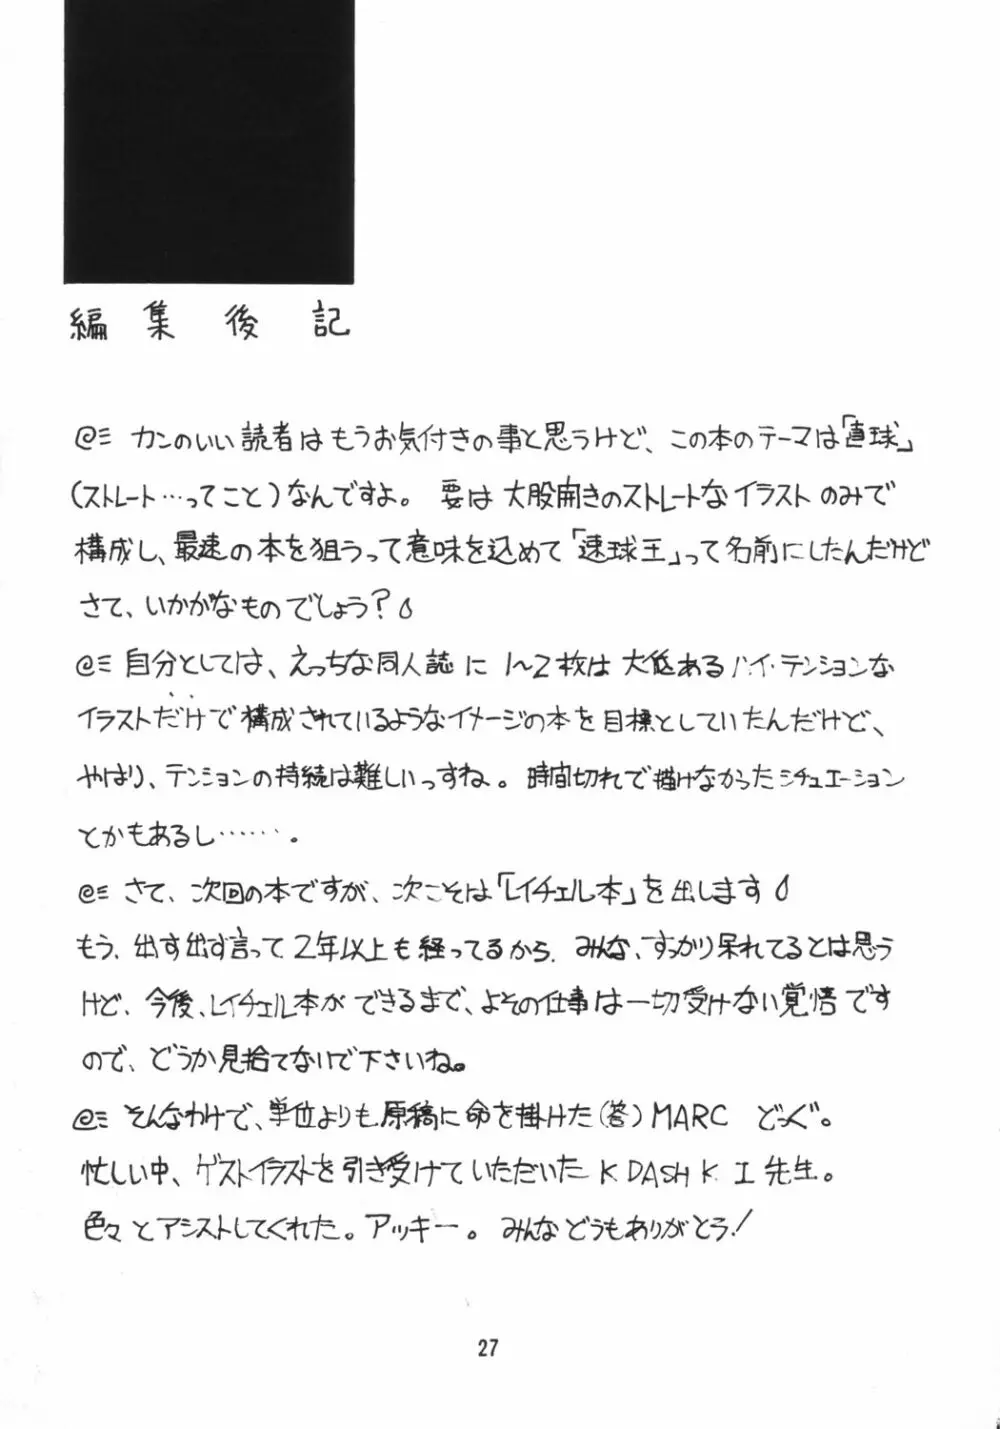 編集後記
@ミ カンのいい読者はもうお気付きの事と思うけど、この本のテーマは「直球」
(ストレート…ってこと)なんですよ。 要は大股開きのストレートなイラストのみで
構成し、最速の本を狙うって意味を込めて「速球王」って名前にしたんだけど
さて、いかがなものでしょう?
@ミ 自分としては、えっちな同人誌に1〜2枚は大低あるハイ・テンションな
イラストだけで構成されているようなイメージの本を目標としていたんだけど、
やはり、テンションの持続は難しいっすね。時間切れで描けなかったシチュエーション
とかもあるし……。
@ミ さて、次回の本ですが、次こそは「レイチェル本」を出します
もう、出す出す言って2年以上も経ってるから、みんな、すっかり呆れてるとは思う
けど、今後、レイチェル本ができるまで、よその仕事は一切受けない覚悟です
ので、どうか見捨てないで下さいね。
@ミ そんなわけで、単位よりも原稿に命を掛けた(答)MARC どっぐ。
忙しい中、ゲストイラストを引き受けていただいたK DASH K I 先生。
色々とアシストしてくれた。アッキー。みんなどうもありがとう!
27